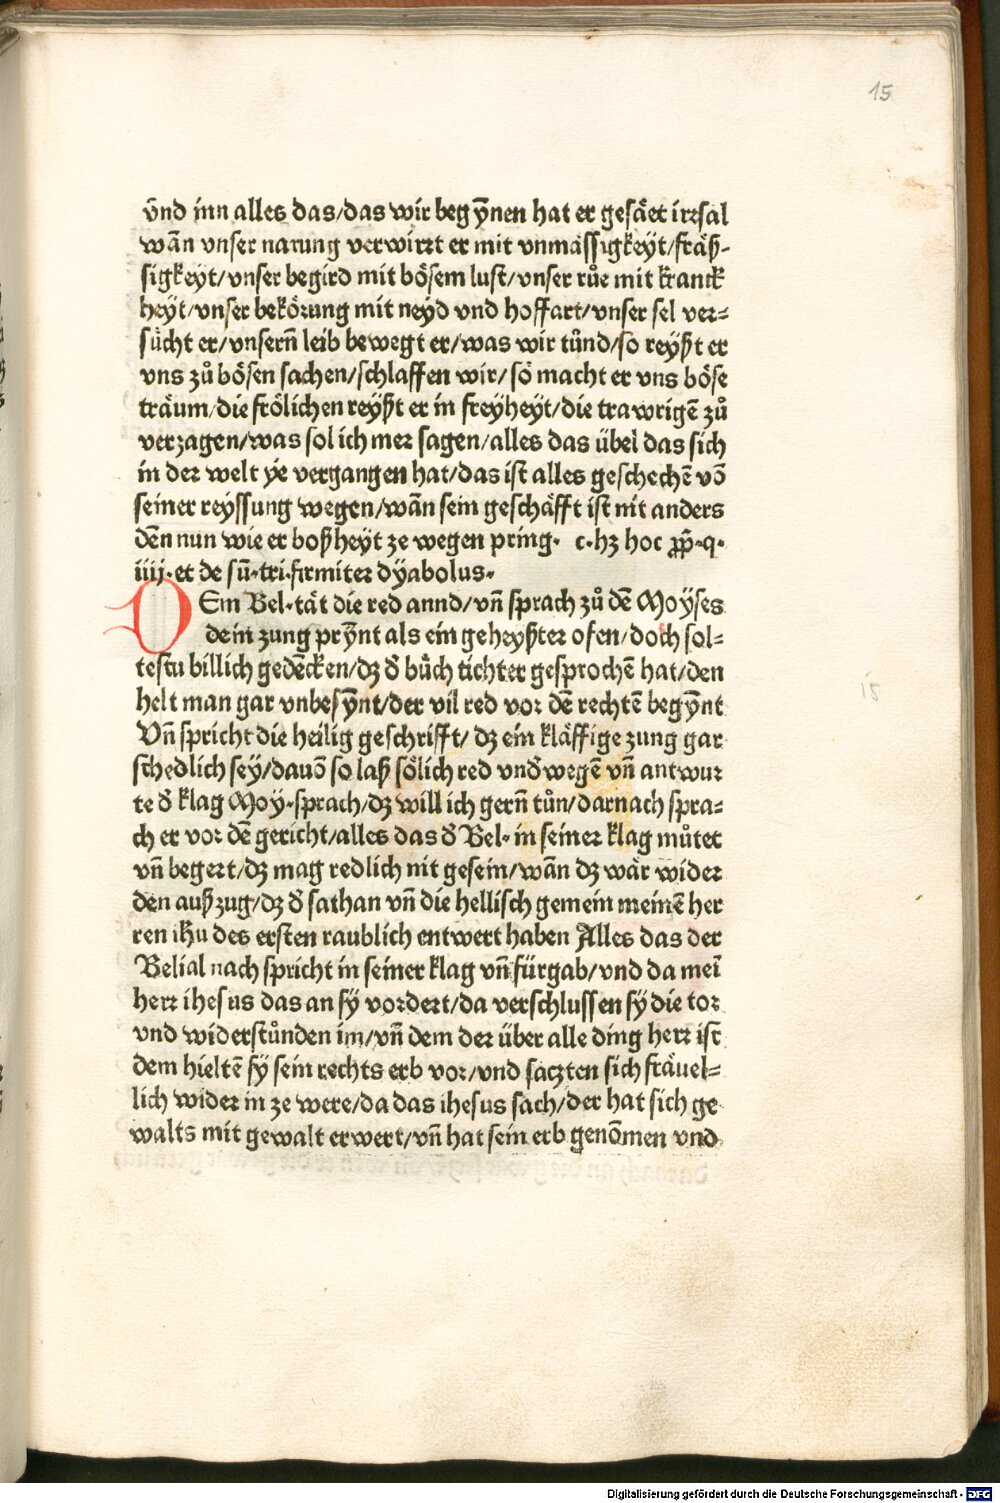 15
vnd inn alles das/das wir begẏnen hat er gesäet irrsal
wān vnser narung verwirrt er mit vnmässigkeyt/fräß-
sigkeyt/vnser begird mit bösem lust/vnser růe mit kranck
heyt/vnser bekörung mit neyd vnd hoffart/vnser sel ver=
sůcht er/vnsern̄ leib bewegt er/was wir tůnd/so reyßt er
vns zů bösen sachen/schlaffen wir/so macht er vns böse
träum/die frölichen reyßt er in freyheyt/die trawrigē zů
verzagen/was sol ich mer sagen/alles das übel das sich
in der welt ye vergangen hat/das ist alles geschechē vō
seiner reyssung wegen/wān sein geschäfft ist nit anders
dēn nun wie er boßheyt ze wegen pring· c·hꝫ hoc ꝓp̄·q·
iiij·et de sū·tri·firmiter dyabolus·
DEm Bel·tät die red annd/vn̄ sprach zů dē Moyses
dein zung prẏnt als ein geheyßter ofen/doch sol=
testu billich gedēcken/dꝫ d̄ bůch tichter gesprochē hat/den
helt man gar vnbesẏnt/der vil red vor dē rechtē begẏnt
Vn̄ spricht die heilig geschrifft/ dꝫ ein kläffige zung gar
schedlich sey/dauō so laß sölich red vnd̄wegē vn̄ antwur
te d̄ klag Moy·sprach/dꝫ will ich gern̄ tůn/darnach spra=
ch er vor dē gericht/alles das d̄ Bel· in seiner klag můtet
vn̄ begert/dꝫ mag redlich nit gesein/wān dꝫ wär wider
den außzug/dꝫ d̄ sathan vn̄ die hellisch gemein meinē her
ren ihū des ersten raublich entwert haben Alles das der
Belial nach spricht in seiner klag vn̄ fürgab/vnd da meī
herr ihesus das an sy vordert/da verschlussen sy die tor
vnd widerstůnden im/vn̄ dem der über alle ding herr ist
dem hieltē sy sein rechts erb vor/vnd saczten sich fräuel=
lich wider in ze were/da das ihesus sach/der hat sich ge
walts mit gewalt erwert/vn̄ hat sein erb genōmen vnd
15
Digitalisierung gefördert durch die Deutsche Forschungsgemeinschaft - DFG